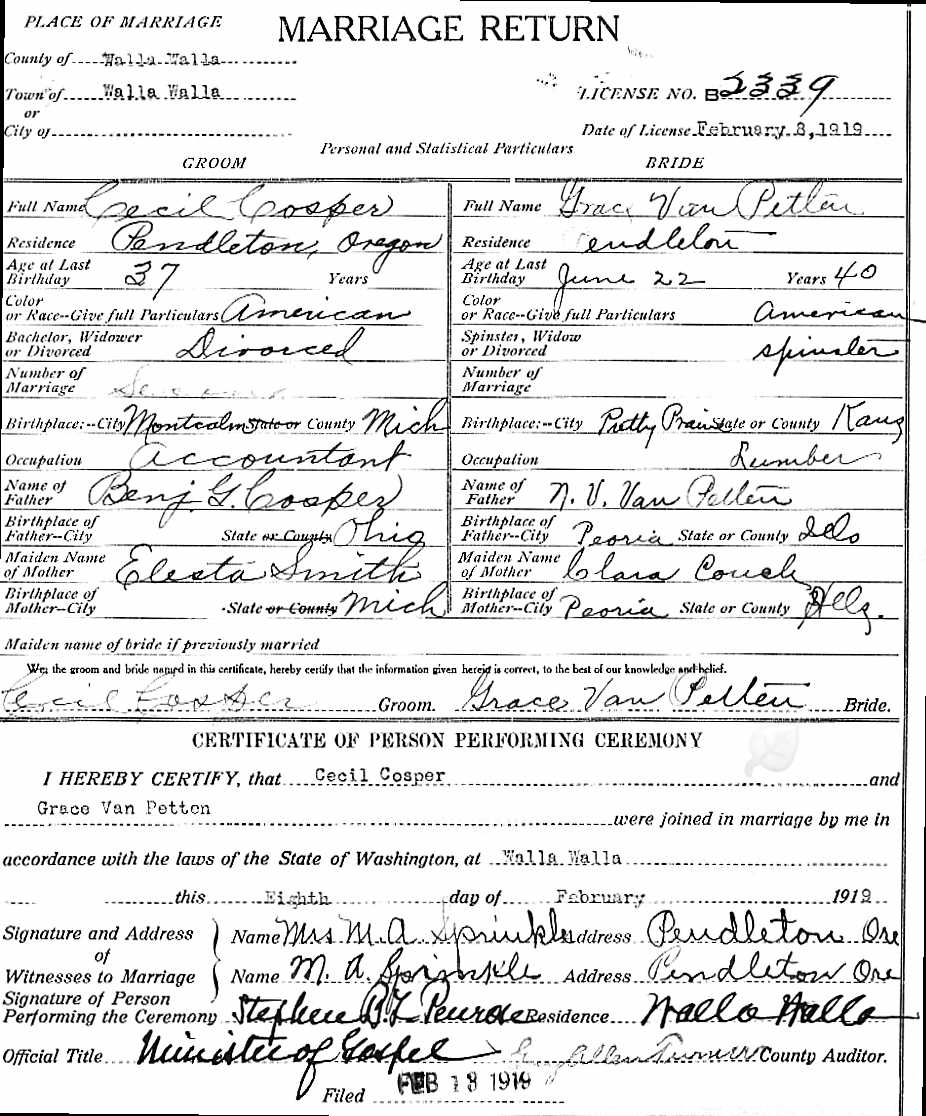 PLACE OF MARRIAGE MARRIAGE RETURN
County of Walla Walla
Town of Walla Walla LICENSE NO. B2339
or
City of Date of License February 8, 1919
Personal and Statistical Particulars
GROOM BRIDE
Full Name Cecil Cosper Full Name Grace Van Petten
Residence Pendleton, Oregon Residence Pendleton
Age at Last Birthday 37 Years Age at Last Birthday June 22 Years 40
Color or Race--Give full Particulars American Color or Race--Give full Particulars American
Bachelor, Widower or Divorced Divorced Spinster, Widow or Divorced spinster
Number of Marriage Number of Marriage
Birthplace:--City Montcalm State or County Mich Birthplace:--City Pretty Prairie State or County Kans
Occupation Accountant Occupation Lumber
Name of Father Benj. G. Cosper Name of Father N. V. Van Petten
Birthplace of Father--City State or County Ohio Birthplace of Father--City Peoria State or County Ills
Maiden Name of Mother Electa Smith Maiden Name of Mother Clara Couch
Birthplace of Mother--City State or County Mich Birthplace of Mother--City Peoria State or County Ills.
Maiden name of bride if previously married
We, the groom and bride named in this certificate, hereby certify that the information given herein is correct, to the best of our knowledge and belief.
Cecil Cosper Groom. Grace Van Petten Bride.
CERTIFICATE OF PERSON PERFORMING CEREMONY
I HEREBY CERTIFY, that Cecil Cosper and
Grace Van Petten
were joined in marriage by me in
accordance with the laws of the State of Washington, at Walla Walla
this Eighth day of February 1919
Signature and Address of Witnesses to Marriage
Name Mrs M. A. Sprinkle Address Pendleton Ore
Name M. A. Sprinkle Address Pendleton Ore
Signature of Person Performing the Ceremony Stephen B L Penrose Residence Walla Walla
Official Title Minister of Gospel Allen Turner County Auditor.
Filed FEB 13 1919